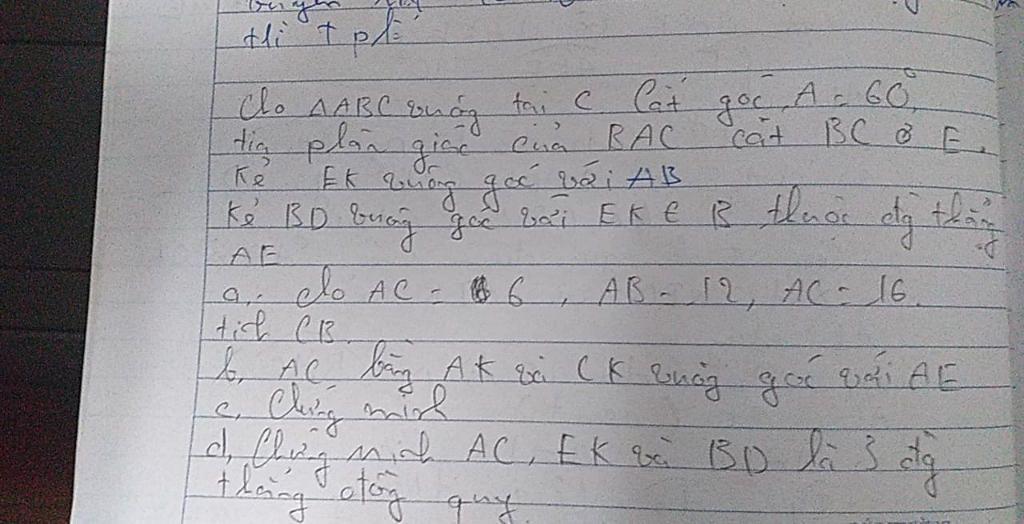 thì t pl
Cho ΔABC vuông tại C Cát góc A = 60°,
tia phân giác của BAC cắt BC ở E.
Kẻ EK vuông góc với AB
Kẻ BD vuông góc với EK E B thuộc đg thẳng
AE
a, cho AC = 6, AB = 12, AC = 16.
tích CB.
b, AC bằng AK và CK vuông góc với AE
c, Chứng minh
d, Chứng minh AC, EK và BD là 3 đg
thẳng đồng quy